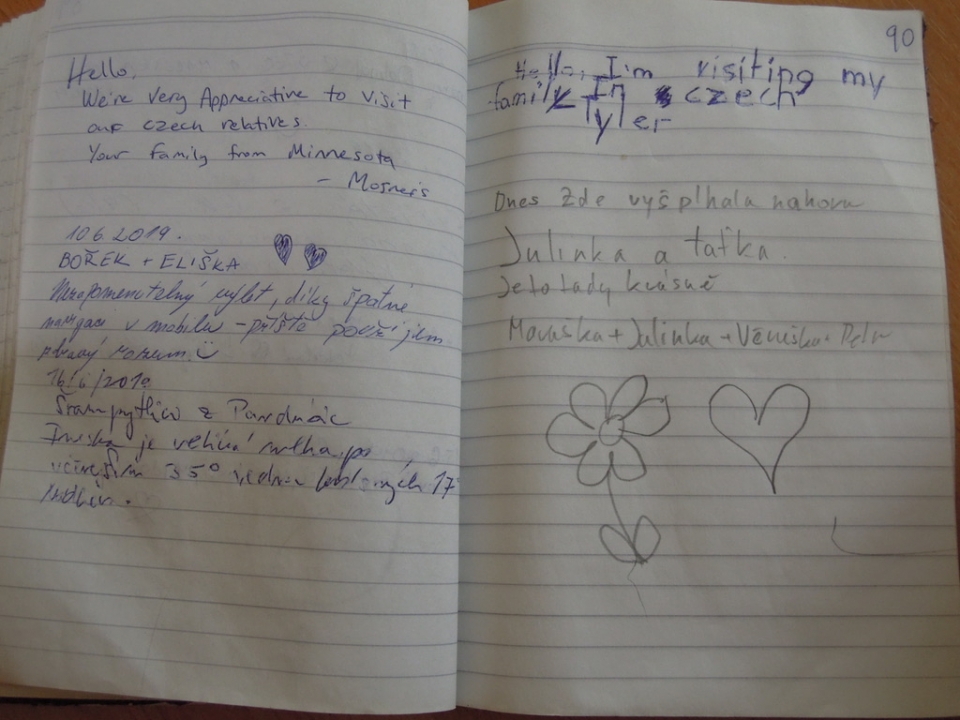 Hello,
We're very Appreciative to visit
our czech relatives.
Your family from Minnesota
- Mosner's
10.6.2019.
BOŘEK + ELIŠKA
Nezapomenutelný výlet, díky špatné
navigaci v mobilu - příště použijem
zdravý rozum
16/6/2019
Šrampytlíci z Pardubic
je velká mlha po
35°
90
Hello, I'm visiting my
family In czech
Tyler
Dnes zde vyšplhala nahoru
Julinka a taťka.
Je to tady krásně
Maruška + Julinka + Věruška + Petr